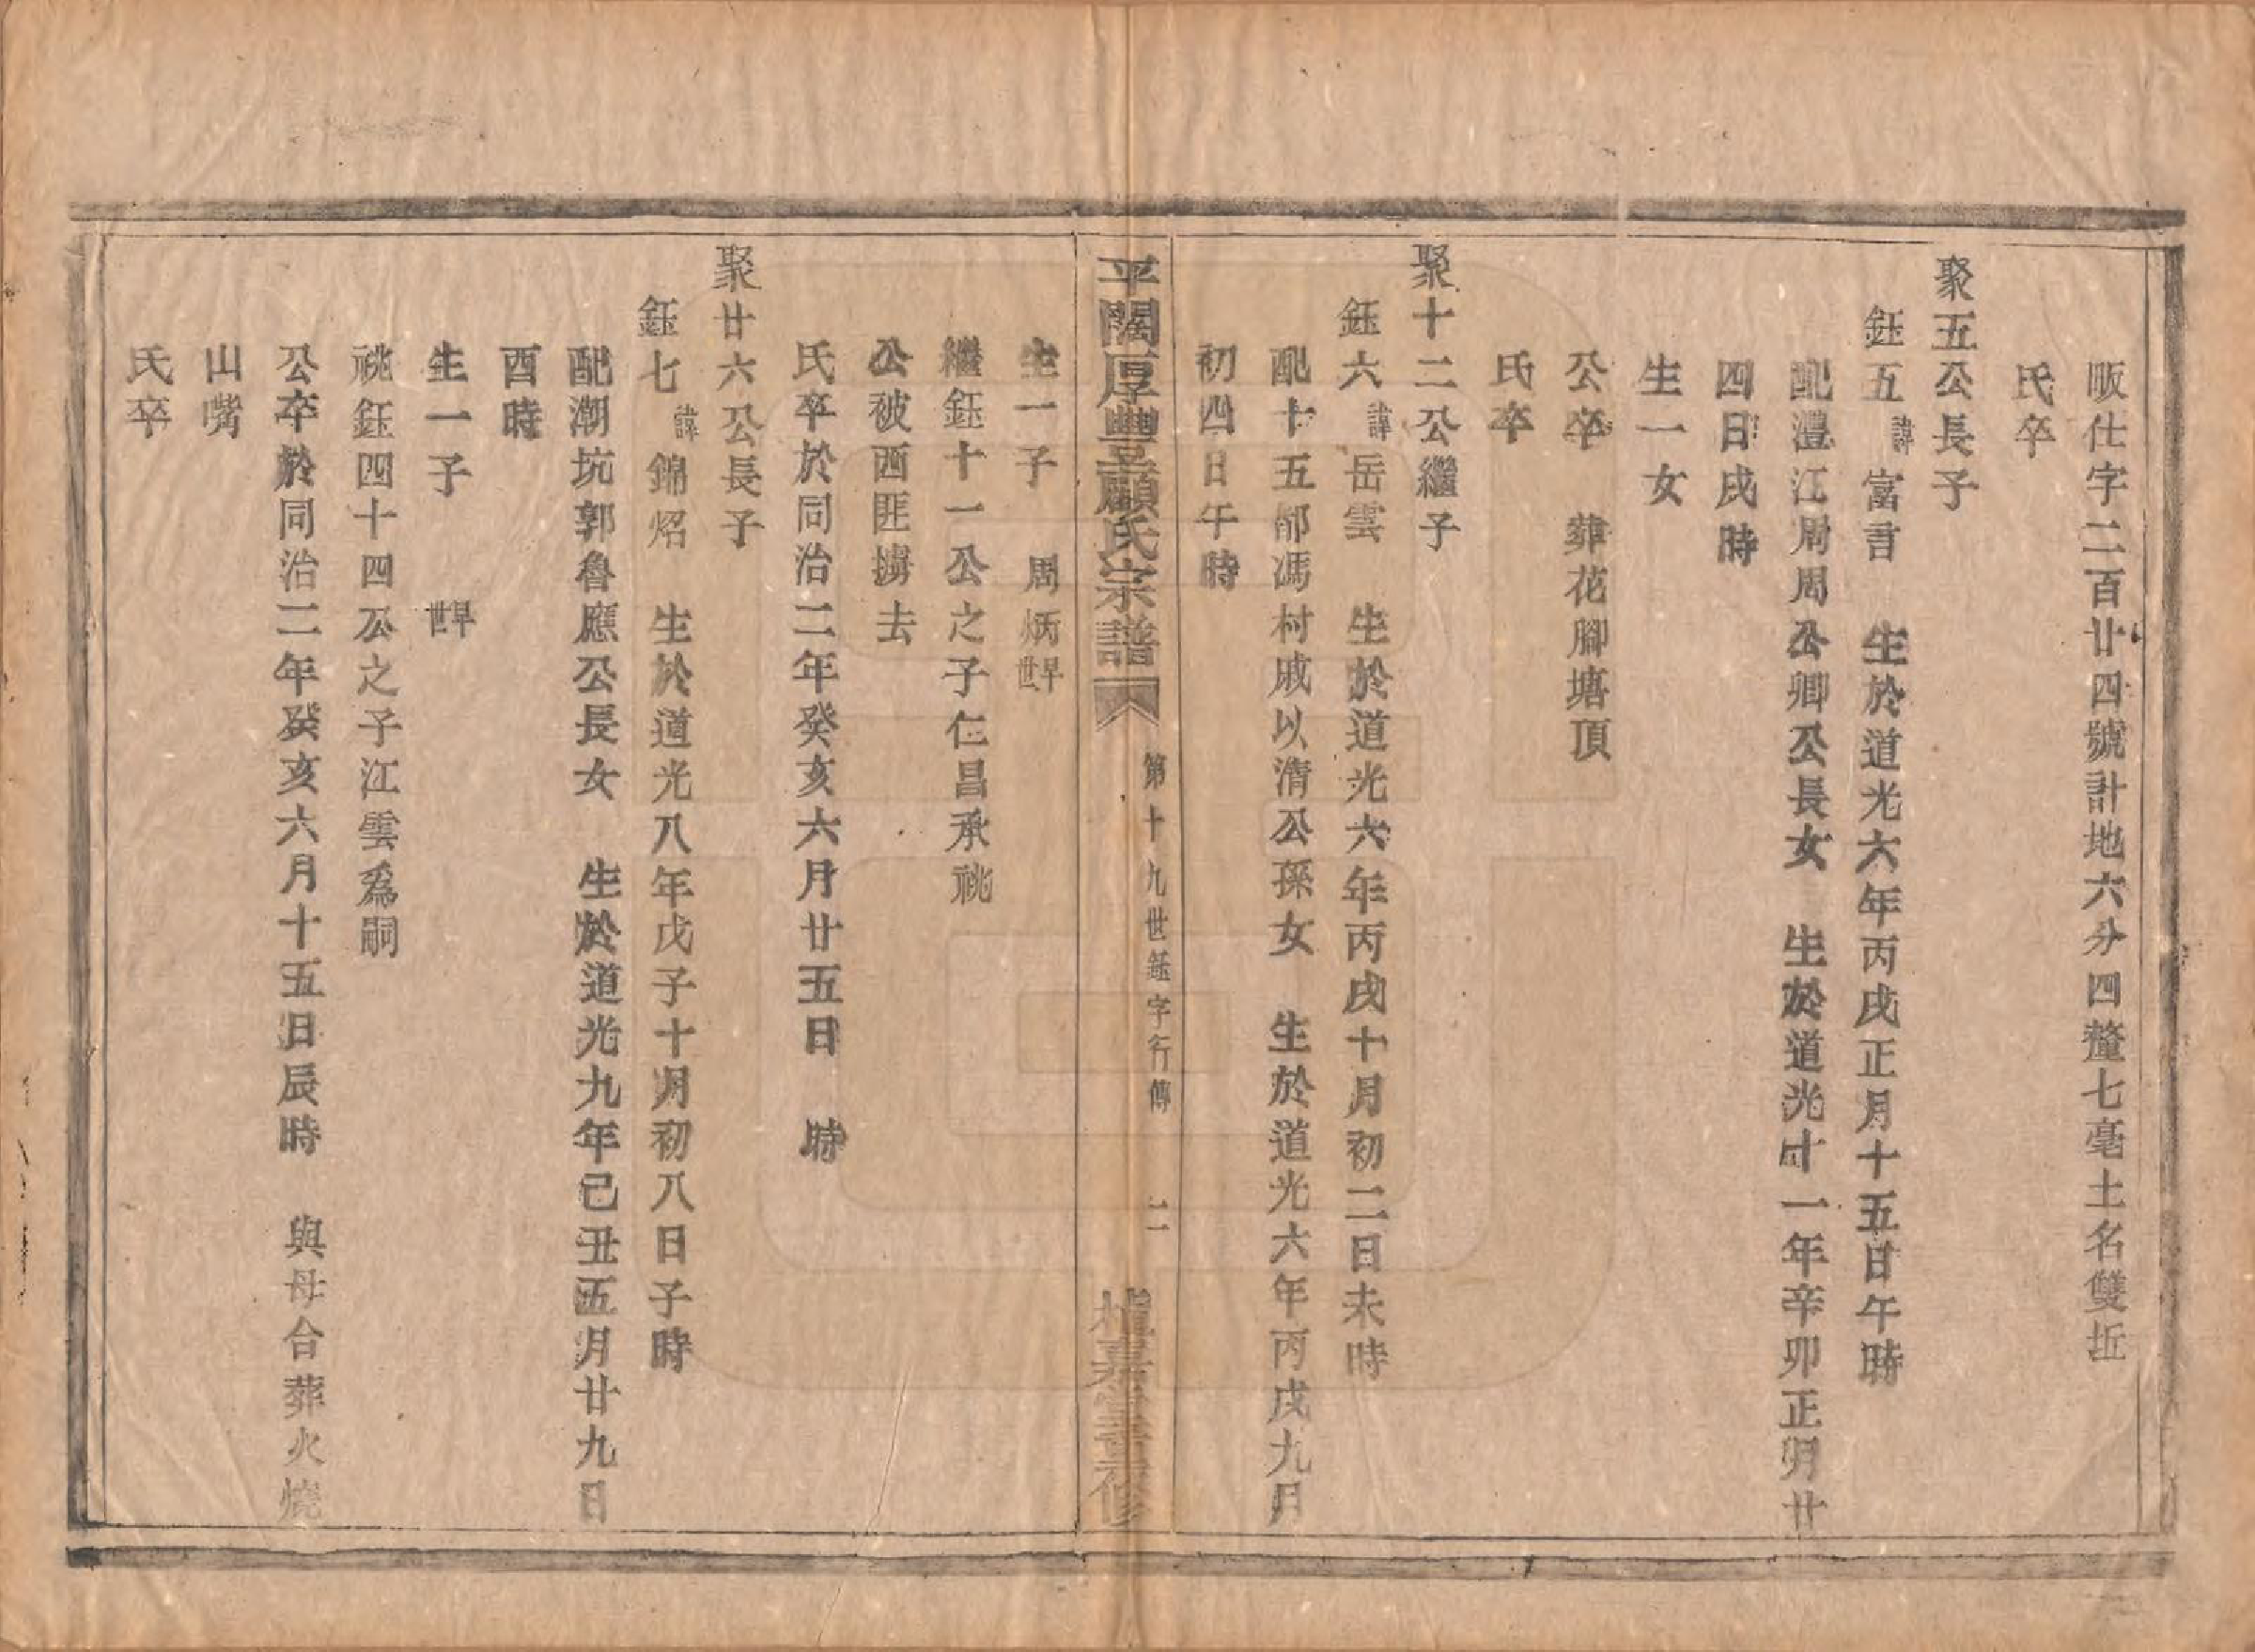 畈仕字二百廿四號計地六分四釐七毫土名雙坵
氏卒
聚五公長子
鈺五 諱 富言 生於道光六年丙戌正月十五日午時
配澧江周周公卿公長女 生於道光十一年辛卯正月廿
四日戌時
生一女
公卒 葬花腳塘頂
氏卒
聚十二公繼子
鈺六 諱 岳雲 生於道光六年丙戌十月初二日未時
配十五都馮村戚以清公孫女 生於道光六年丙戌九月
初四日午時
平闊厚豐顧氏宗譜 第十九世鈺字行傳 二
生一子 周炳 早世
繼鈺十一公之子仁昌承祧
公被西匪擄去
氏卒於同治二年癸亥六月廿五日 時
聚廿六公長子
鈺七 諱 錦炤 生於道光八年戊子十月初八日子時
配潮坑郭魯應公長女 生於道光九年己丑五月廿九日
酉時
生一子 早世
祧鈺四十四公之子江雲為嗣
公卒於同治二年癸亥六月十五日辰時 與母合葬火燒
山嘴
氏卒